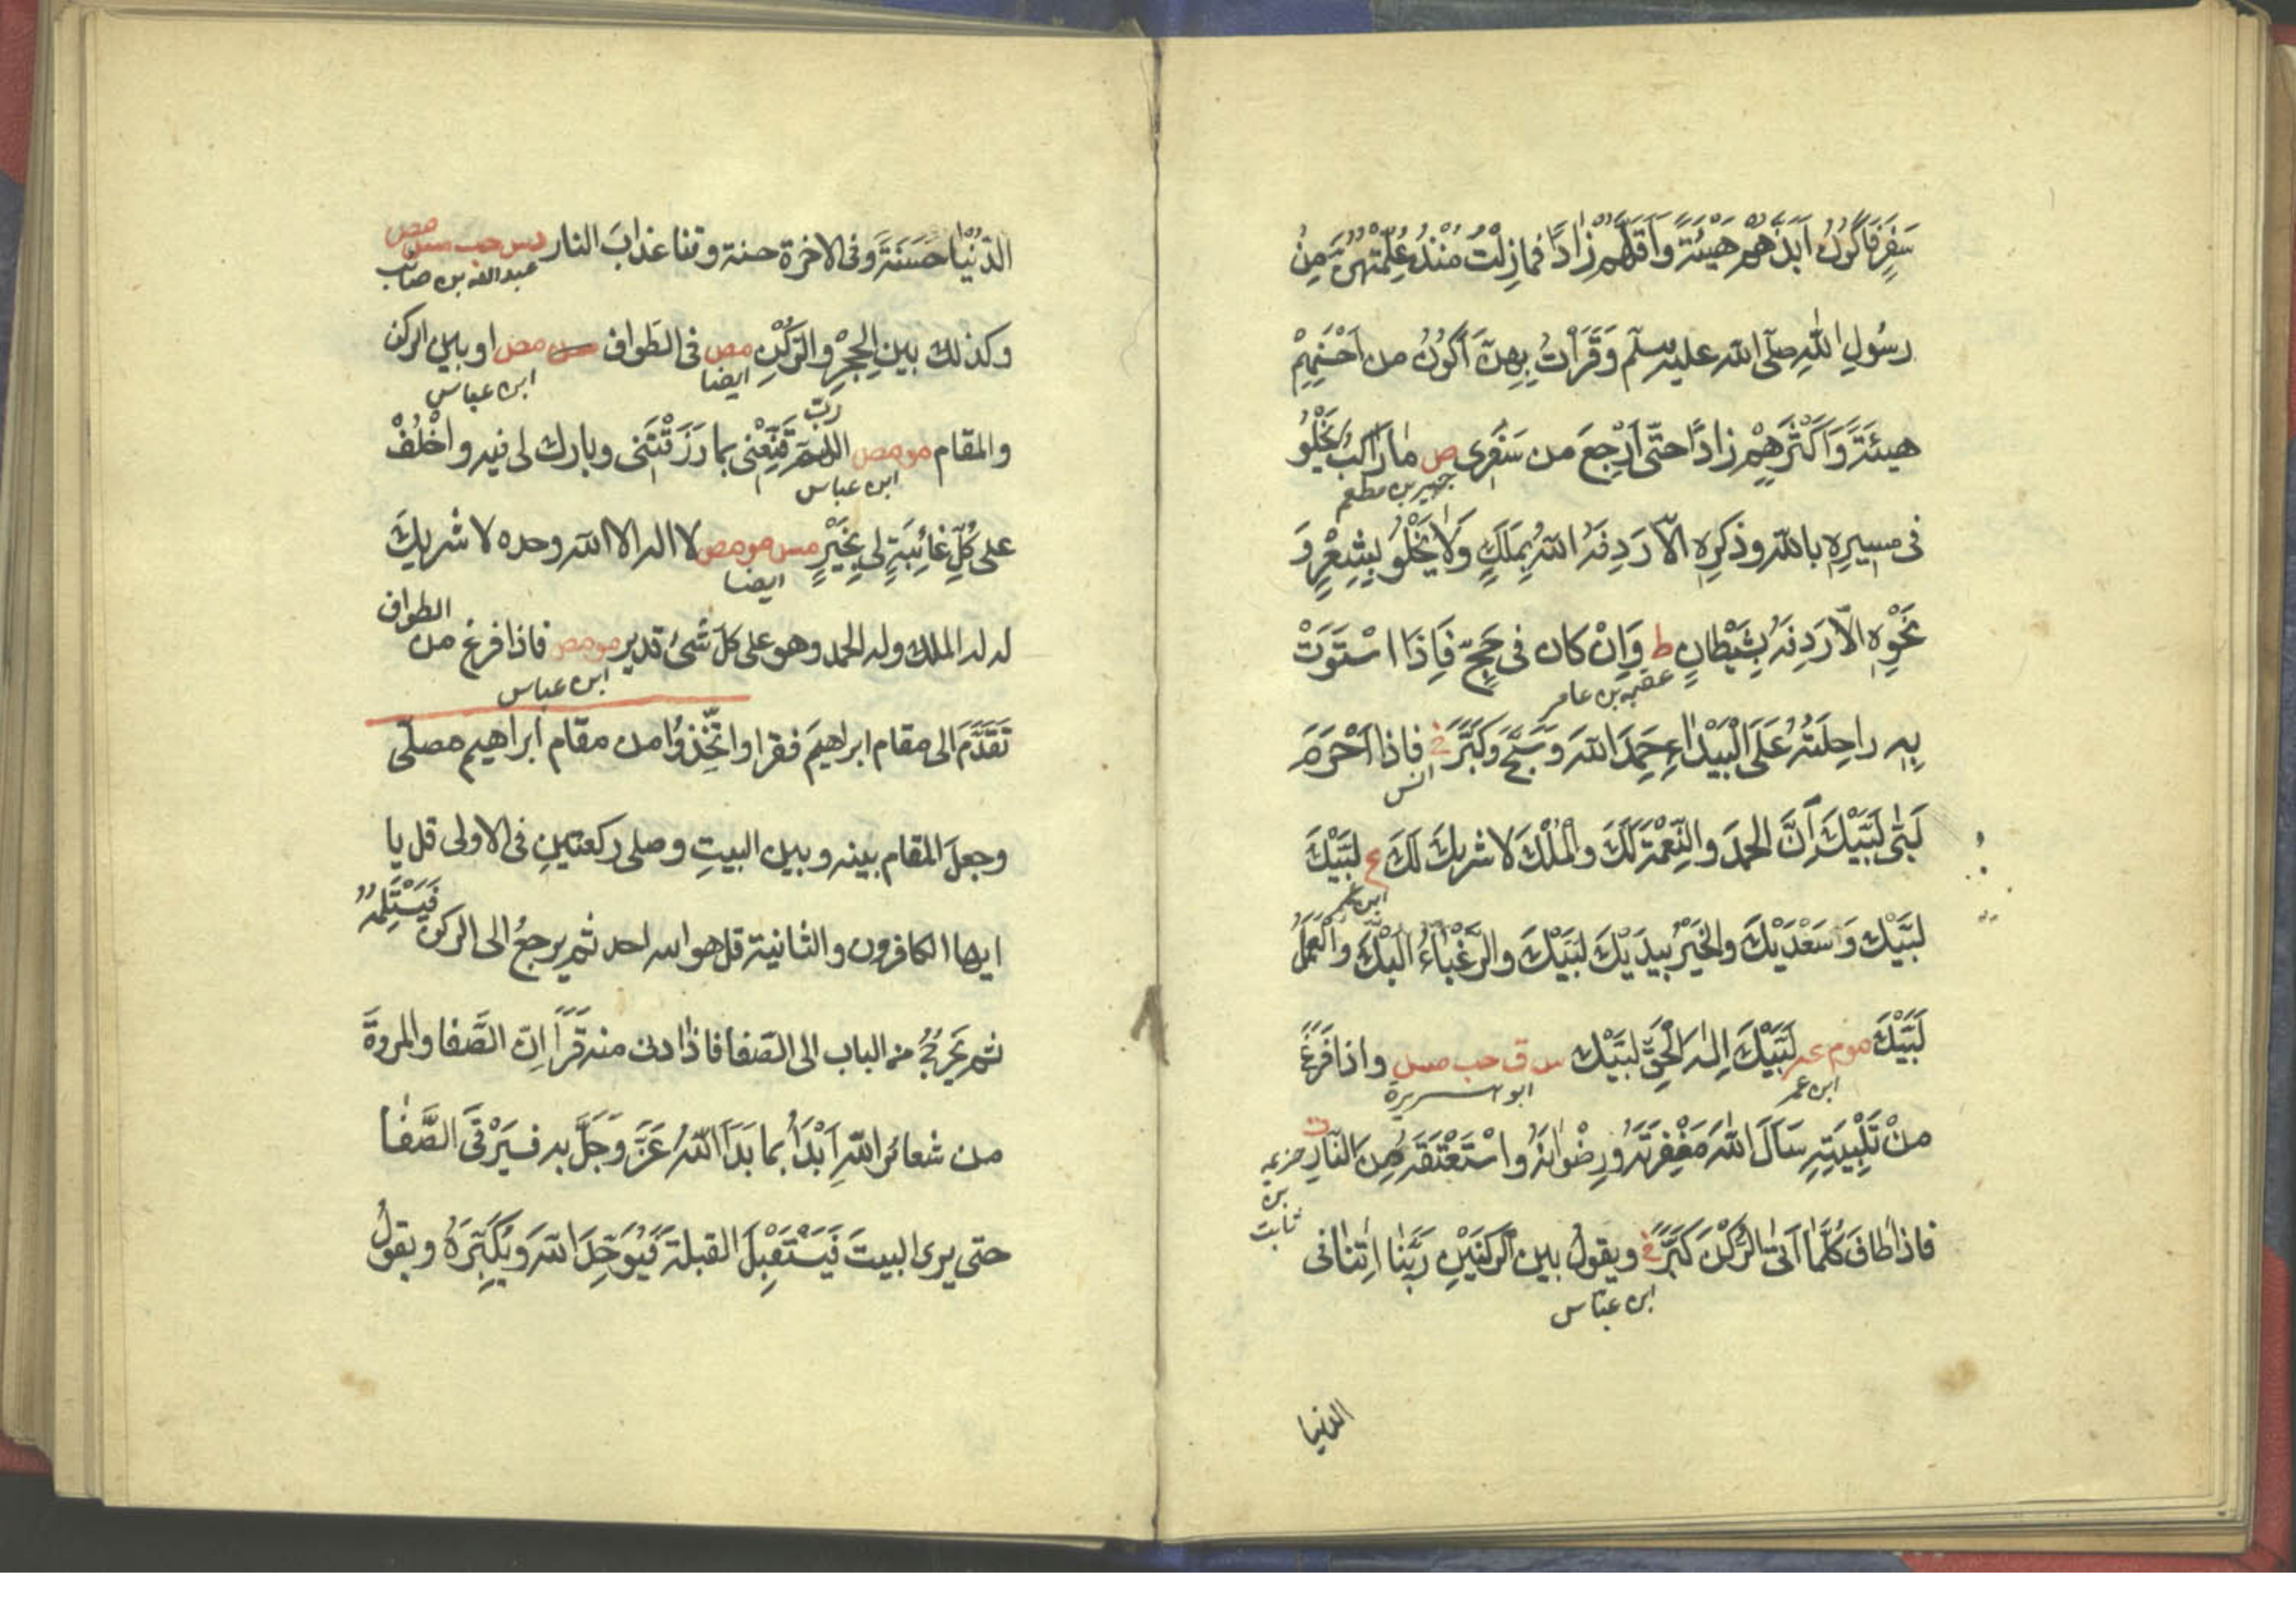 سَفَرٍ فَاَكُونُ اَبَذَّهُمْ هَيْئَةً وَاَقَلَّهُمْ زَادًا فمازِلْتُ مُنْذُ عُلِّمْتُهُنَّ مِنْ
رسُولِ اللهِ صلّى الله عليه وسلّم وَقَرَأتُ بِهِنَّ اَكُونُ من اَحْسَنِهِمْ
هيئَةً وَاَكْثَرِهِمْ زادًا حتّى اَرْجِعَ من سَفَرِى ص ما رَاكبٌ يَخْلُو
جبير بن مطعم
فى مسِيرِهِ بالله وذكرِهِ الّا رَدِفَهُ اللهُ بِمَلَكٍ وَلَا يَخْلُو بِشِعْرٍ وَ
نَحْوِهِ الّا رَدِفَهُ بِشَيْطانٍ ط وَاِنْ كان فى حَجٍّ فَاِذَا اسْتَوَتْ
عقبه بن عامر
بِهِ راحِلَتُهُ عَلَى الْبَيْدَاءِ حَمِدَ اللهَ وَسَبَّحَ وَكَبَّرَ خ فاذا اَحْرَمَ
انس
لَبّى لَبَّيْكَ اِنَّ الحمدَ والنِّعْمَةَ لَكَ والْمُلْكَ لا شريكَ لَكَ ع لَبَّيْكَ
ابن عمر
لبَّيْك وَسَعْدَيْكَ والخَيْرُ بِيدَيْكَ لبَّيْكَ والرَّغْبَاءُ اليْكَ والْعَمَلُ
لَبَّيْكَ موم عه لَبَّيْكَ اِلٰهَ الْحَقِّ لبَّيْك س ق حب مس واذا فَرَغَ
ابن عمر
ابو هريرة
منْ تَلْبِيَتِهِ سَأَلَ اللهَ مَغْفِرَتَهُ ورِضْوَانَهُ وَاسْتَعْتَقَهُ مِنَ النّارِ
خزيمه بن ثابت
فاذا طافَ كُلَّمَا اَتَى الرُّكْنَ كَبَّرَ خ ويقولُ بين الركنَيْنِ رَبَّنا اٰتِنا فى
ابن عبّاس
الدنيا
الدّنْيَا حَسَنَةً وَفى الاخرة حسنة وقنا عذابَ النار دس حب مس مص
وكذلك بَيْنَ الحِجْرِ والرُّكْنِ مص فى الطَواف مس مص او بين الركن
ايضا
ابن عباس
والمقام مو مص اللهمّ رب قَنِّعْنى بما رَزَقْتَنى وبارك لى فيه واخْلُفْ
ابن عباس
على كُلِّ غائِبَةٍ لى بِخَيْرٍ مس مو مص لا اله الا الله وحده لا شريكَ
ايضا
له له الملك وله الحمد وهو على كلّ شَئٍ قدير مو مص فاذا فرغ من الطواف
ابن عباس
تَقَدَّمَ الى مقام ابراهيمَ فقرا واتَّخِذُوا من مقام ابراهيم مصلّى
وجعلَ المقام بينه وبين البيتِ وصلى ركعتينِ فى الاولى قل يا
ايها الكافرون والثانية قل هو الله احد ثم يرجعُ الى الركن فيَسْتَلِمُهُ
ثم يَخْرُجُ من الباب الى الصَفا فاذا دنى منه قَرَأَ اِنّ الصَّفا والمروةَ
من شعائر اللهِ اَبْدَأُ بما بَدَأَ اللهُ عَزَّ وَجَلَّ به فيَرْقَى الصَّفَا
حتى يرى البيتَ فَيَسْتَقْبِلَ القبلةَ فَيُوَحِّدَ اللهَ ويُكَبِّرَهُ ويقولُ